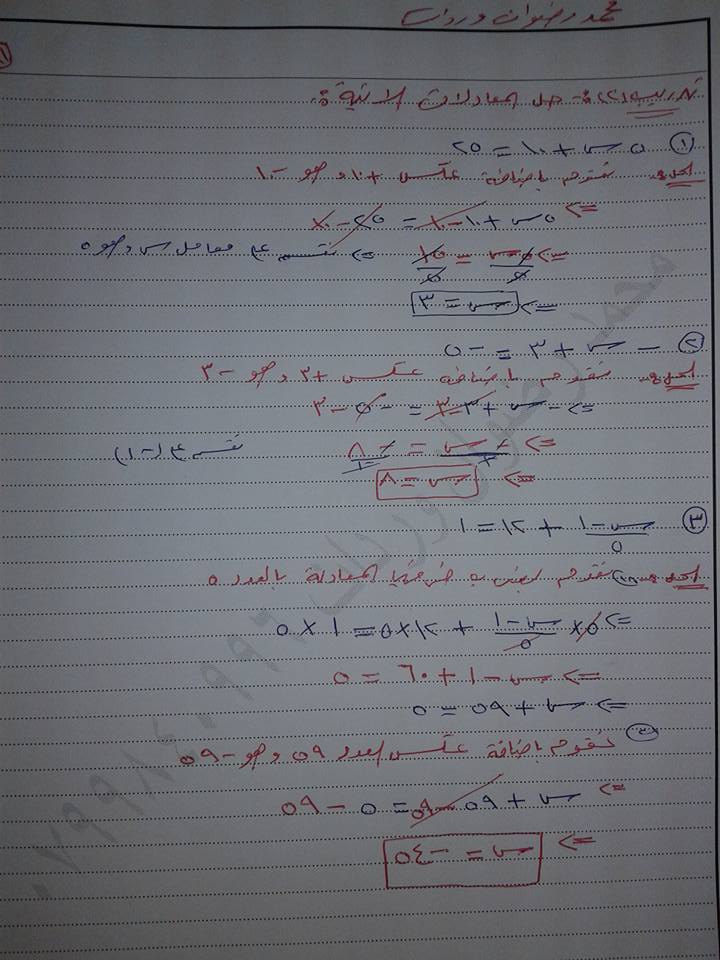 محمد رضوان وردات
تدريب (٢):- حل المعادلات الاتية:
① ٥س + ١٠ = ٢٥
الحل: نقوم باضافة عكس +١٠ وهو -١٠
<= ٥س + ١٠ - ١٠ = ٢٥ - ١٠
<= ٥س/٥ = ١٥/٥ <= نقسم ع معامل س وهو ٥
<= س = ٣
② - س + ٣ = -٥
الحل: نقوم باضافة عكس +٣ وهو -٣
<= - س + ٣ - ٣ = -٥ - ٣
<= -س/-١ = -٨/-١ نقسم ع (-١)
<= س = ٨
③ س - ١/٥ + ١٢ = ١
الحل: ① نقوم بضرب طرفي المعادلة بالعدد ٥
<= ٥ × س - ١/٥ + ١٢ × ٥ = ١ × ٥
<= س - ١ + ٦٠ = ٥
<= س + ٥٩ = ٥
② نقوم باضافة عكس العدد ٥٩ وهو -٥٩
<= س + ٥٩ - ٥٩ = ٥ - ٥٩
<= س = -٥٤
محمد رضوان وردات